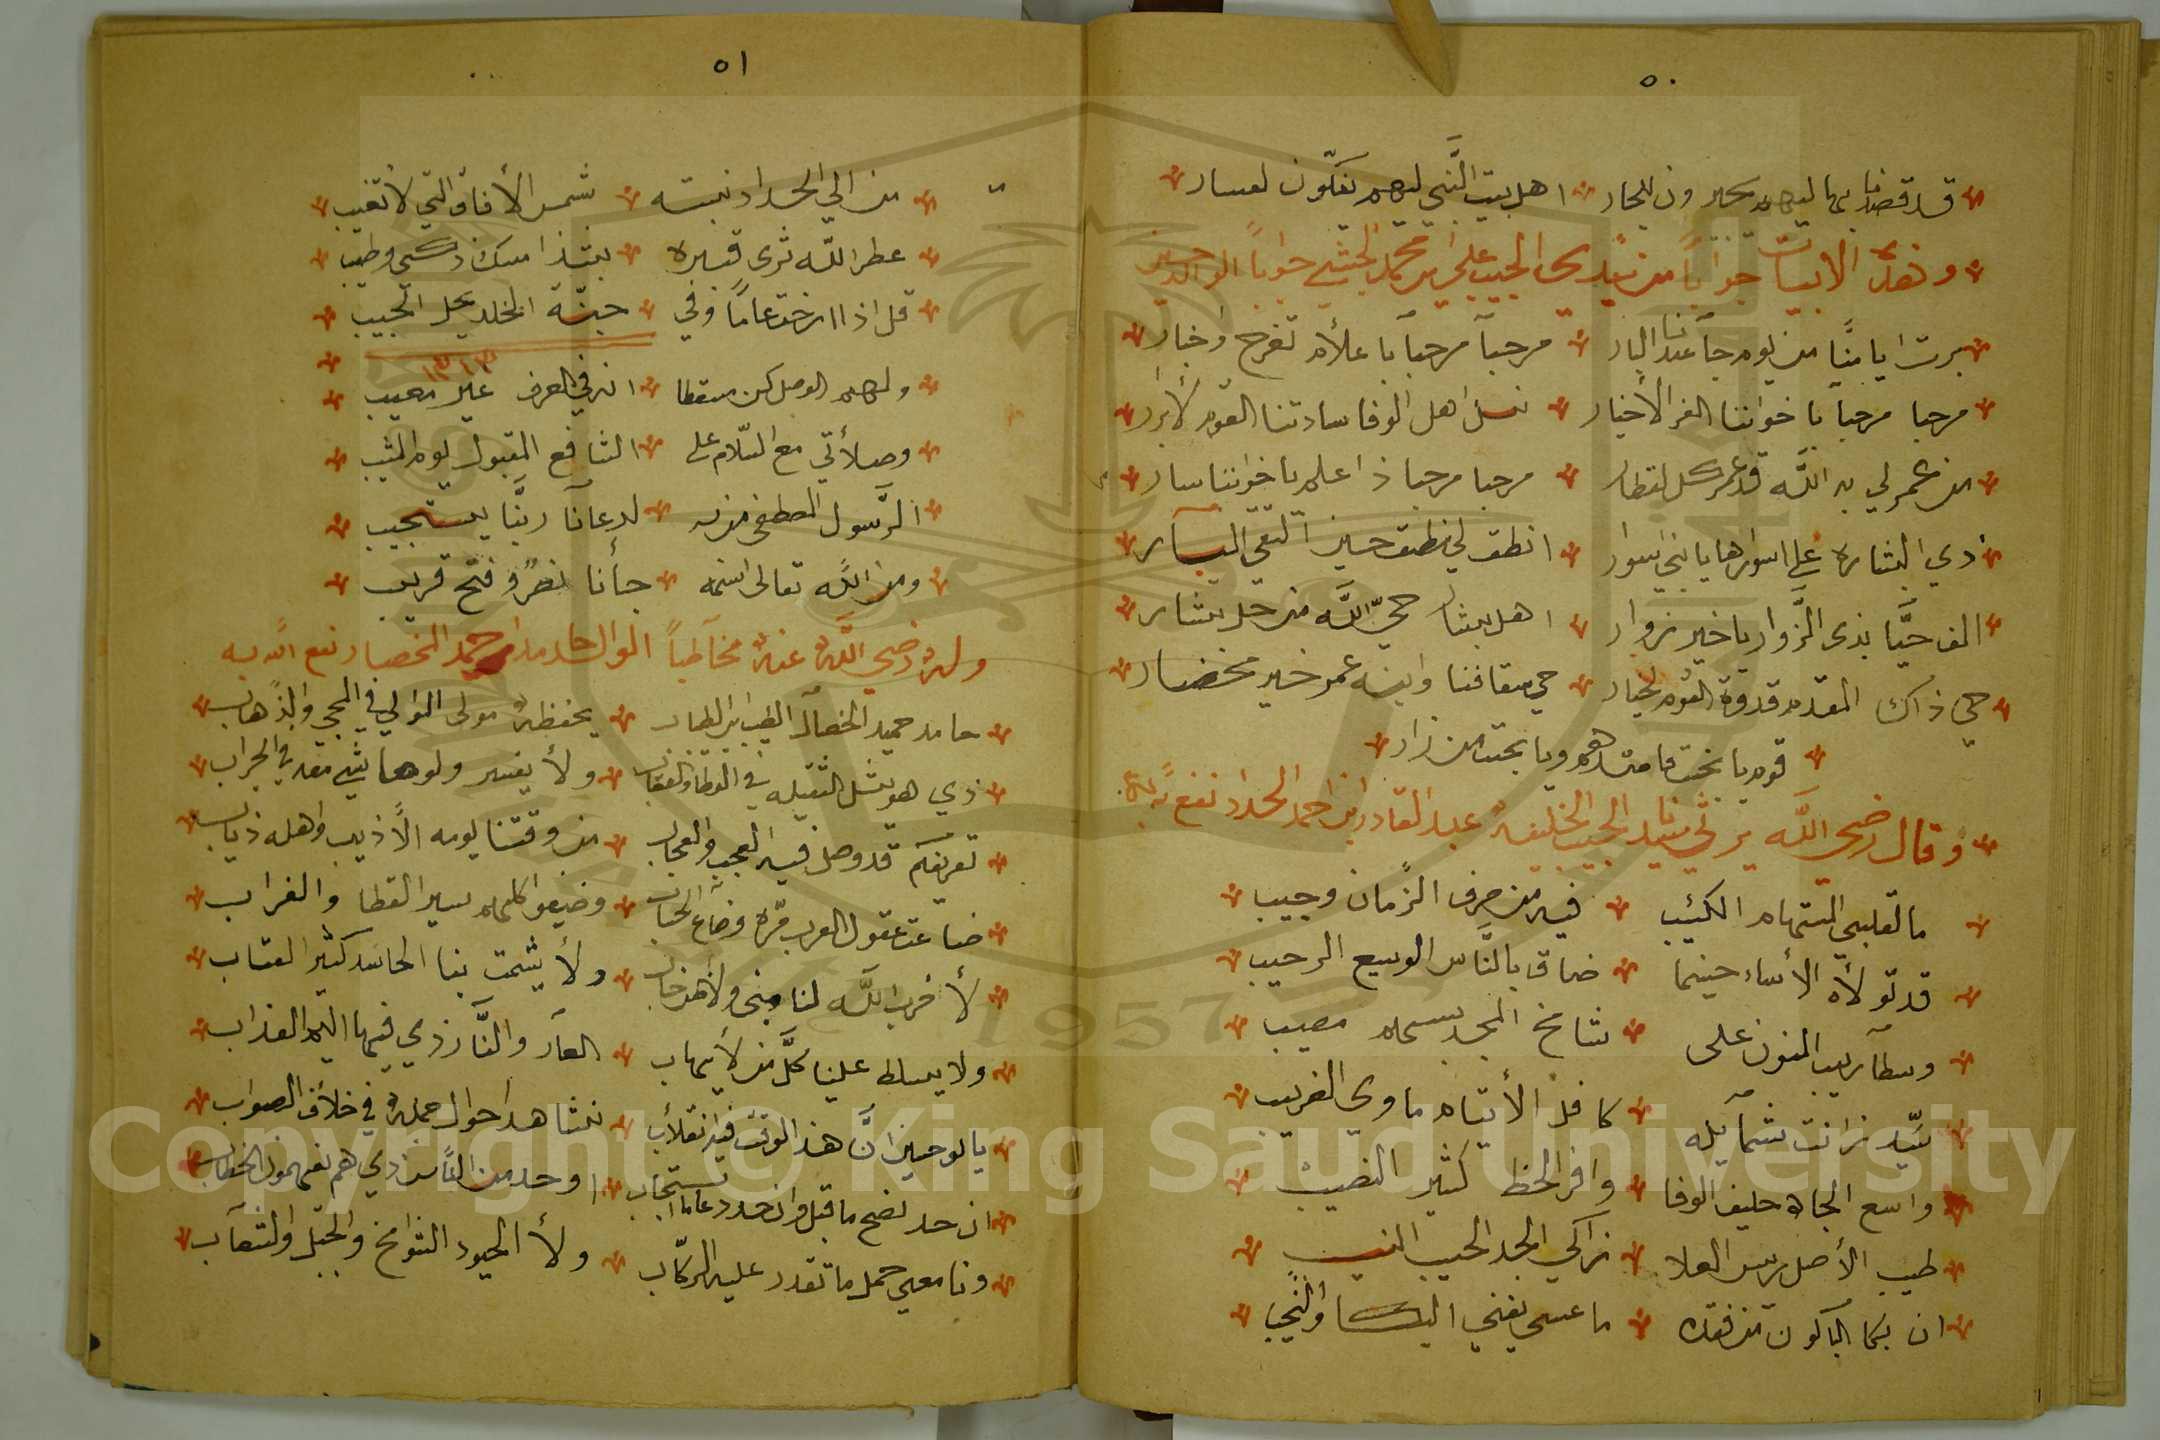 ٥٠
قد قصدنا بها ليهم يجيرون للجار اهل بيت النَّبي ليهم يفكّون لعسار
وهذه الابيات جواباً من سيدي الحبيب علي بن محمد الحبشي جواباً الوالد حسين
برت ايامنَّا من يوم جا عندنا البار مرحباً مرحباً با علاّم تفرح واخبار
مرحبا مرحباً باخواننا الغر الأخيار نسل اهل الوفا ساداتنا القوم لأبرار
من عمر لي به اللَّه قد عمر كل لقطار مرحبا مرحبا ذا علم باخواننا سار
ذي البشاره على اسوارها يا بني اسوار انطق لي نطق حين التقي
الف حيَّا بذى الزَّوار يا خير زوار اهل بشار حيّ اللَّه من حل بشار
حي ذاك المقدم قدوة القوم لخيار حي سقافنا وابنه عمر خير محضار
قوم يا بخت ما شدهم ويا بخت من زار
وقال رضي اللَّه يرثي سيد الحبيب الخليفه عبد القادر ابن احمد الحداد نفع به
ما لقلبي المستهام الكئيب فيه من صرف الزَّمان وجيب
قد تولاَّه الأساء حينما ضاق بالنَّاس الوسيع الرحيب
وسطا ريب المنون على شامخ المجد بسهم مصيب
سيّد زانت شمايله كافل الأيتام ماوي الغريب
واسع الجاه حليف الوفا وافر الحظ كثير النصيب
طيب الأصل رئيس العلا زاكي الجد الحسيب النسيب
ان بكا الباكون من فقده ما عسى يغني البكا والنَّحيب
٥١
من الي الحداد نسبته شمس الأفاق التي لا تغيب
عطر اللَّه ثرى قبره بشذا مسك ذكي وطيب
قل اذا ارخت عاماً وفي جنّة الخلد يحل الحبيب
١٣١٣
ولهم الوصل كن مسقطا انه في العرف غير معيب
وصلأتي مع السّلام على الشافع المقبول يوم المشيب
الرَّسول المصطفى من به لدعآنا ربَّنا يستجيب
ومن اللَّه تعالى اسمه جأنا نصرٌ وفتح قريب
وله رضي اللَّه عنه مخاطباً الوالد حامد ابن احمد المحضار نفع اللّه به
حامد حميد الخصال الطيب ابن الطياب يحفظه مولى الموالي في المجي والذَّهاب
ذي هو يشل الثقيله في الوطا والعقاب ولأ يفسر ولو ما شي معه في الجراب
تعريفكم قد وصل فيه العجب والعجاب من وقتنا يومه الأَّ ذيب واهله ذياب
ضاعت عقول العرب مرّه وضاع الحساب وضيعوا كلهم سير القطا والغراب
لأ خرب اللَّه لنا مبنى ولأ ولأ يشمت بنا الحاسد كثير العتاب
ولا يسلط علينا كلَّ من لأ يهاب العآر والنَّار ذي فيها اليم العذاب
يا بو حسين انَّ هذ الوقت فيه انقلأب نشاهد احوال جمله في خلاف الصواب
ان حد نصح ما قبل وان حد دعا ما استجاب او حد من النَّاس ذي هم يفهمون الخطاب
ونا معي حمل ما تقدر عليه الركّاب ولأ الحيود الشوامخ والجبل والشعآب